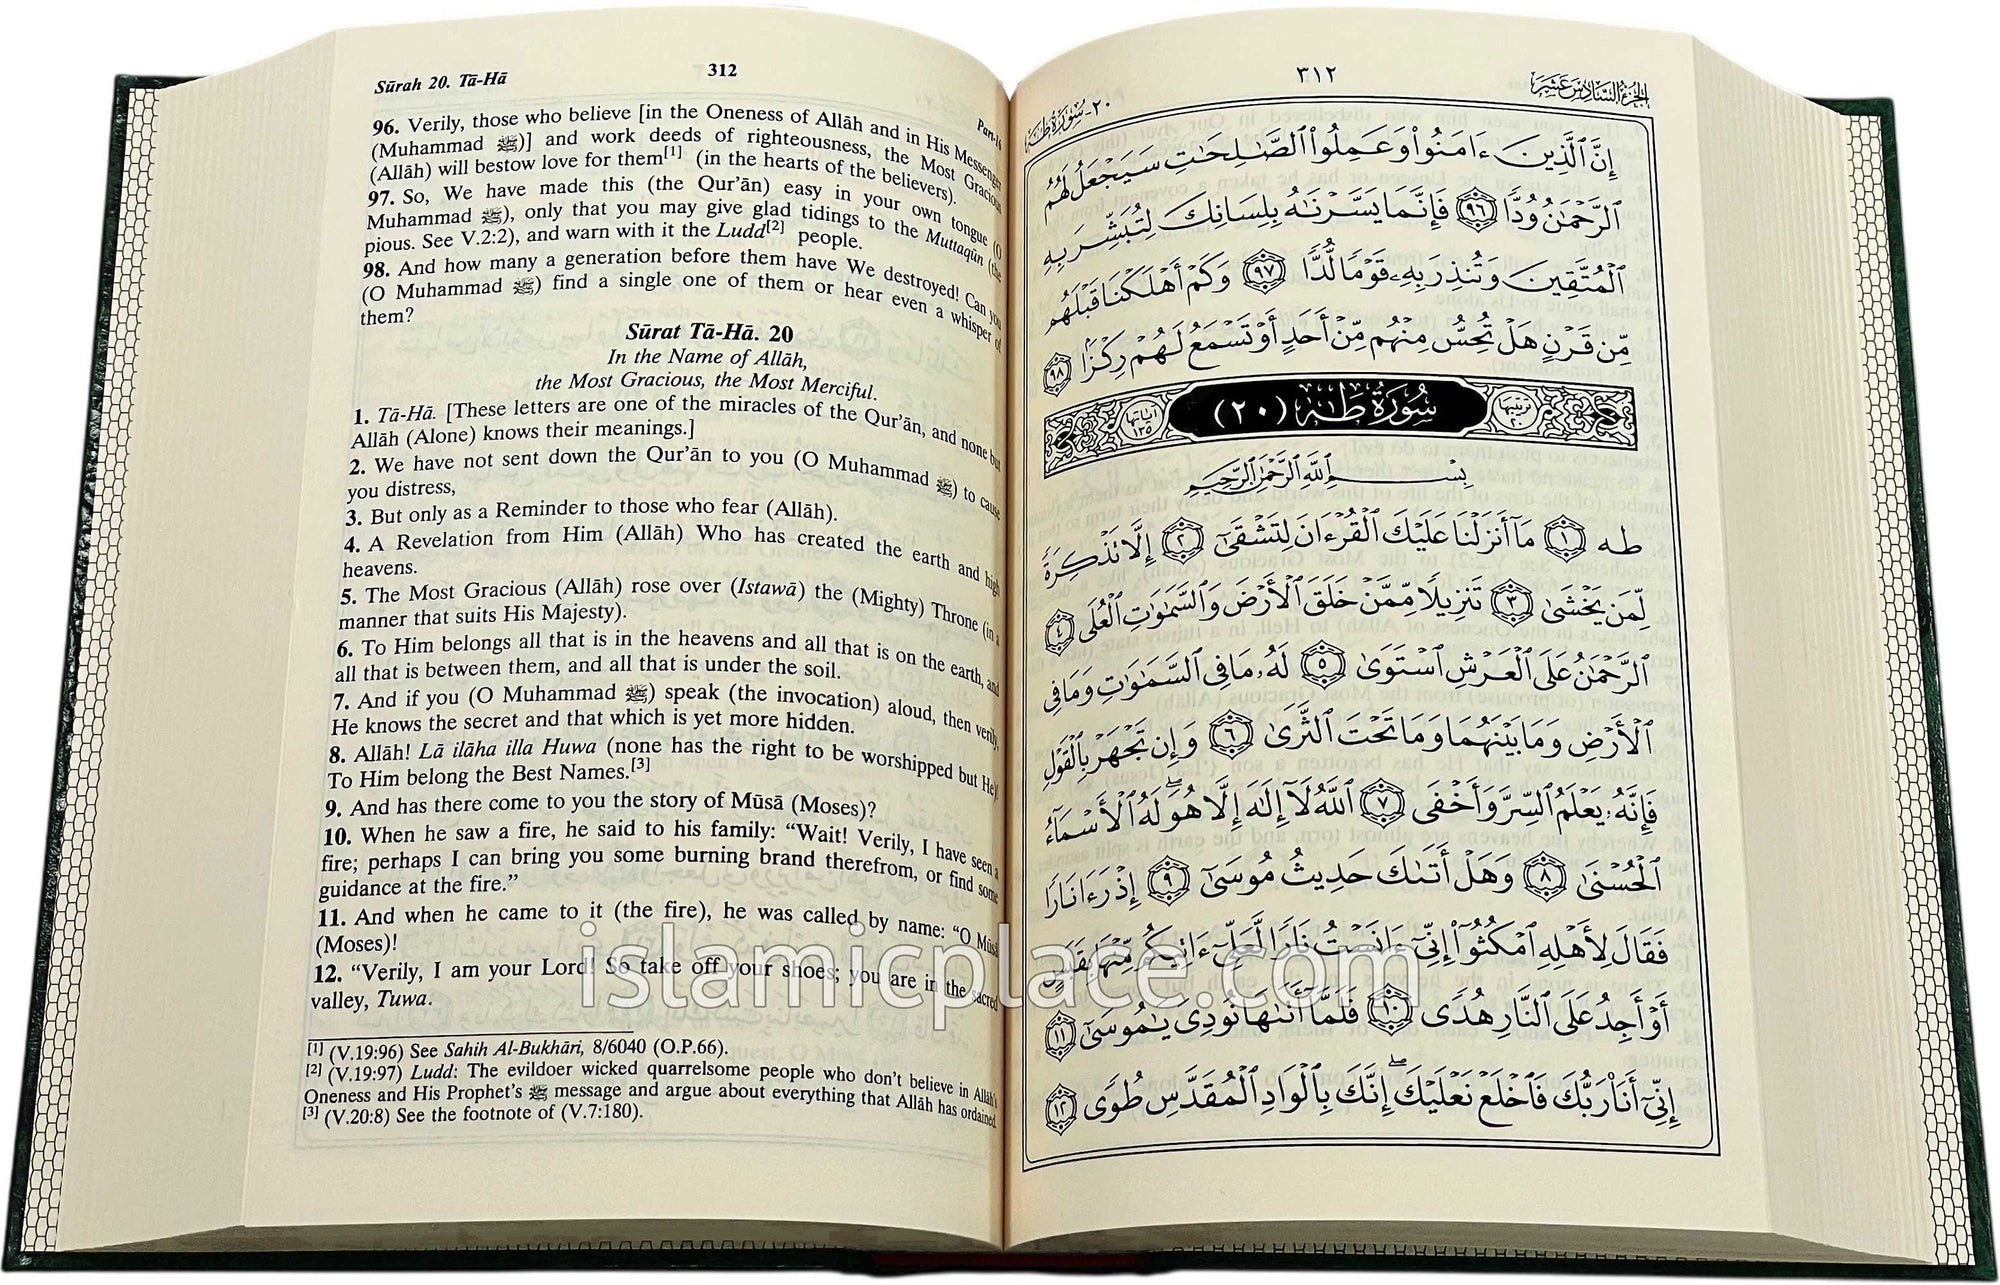 Sūrah 20. Tā-Hā
312
Part-16
96. Verily, those who believe [in the Oneness of Allāh and in His Messenger
(Muhammad ﷺ)] and work deeds of righteousness, the Most Gracious
(Allāh) will bestow love for them[1] (in the hearts of the believers).
97. So, We have made this (the Qur'ān) easy in your own tongue (O
Muhammad ﷺ), only that you may give glad tidings to the Muttaqūn (the
pious. See V.2:2), and warn with it the Ludd[2] people.
98. And how many a generation before them have We destroyed! Can you
(O Muhammad ﷺ) find a single one of them or hear even a whisper of
them?
Sūrat Tā-Hā. 20
In the Name of Allāh,
the Most Gracious, the Most Merciful.
1. Tā-Hā. [These letters are one of the miracles of the Qur'ān, and none but
Allāh (Alone) knows their meanings.]
2. We have not sent down the Qur'ān to you (O Muhammad ﷺ) to cause
you distress,
3. But only as a Reminder to those who fear (Allāh).
4. A Revelation from Him (Allāh) Who has created the earth and high
heavens.
5. The Most Gracious (Allāh) rose over (Istawā) the (Mighty) Throne (in a
manner that suits His Majesty).
6. To Him belongs all that is in the heavens and all that is on the earth, and
all that is between them, and all that is under the soil.
7. And if you (O Muhammad ﷺ) speak (the invocation) aloud, then verily,
He knows the secret and that which is yet more hidden.
8. Allāh! Lā ilāha illa Huwa (none has the right to be worshipped but He)!
To Him belong the Best Names.[3]
9. And has there come to you the story of Mūsā (Moses)?
10. When he saw a fire, he said to his family: "Wait! Verily, I have seen a
fire; perhaps I can bring you some burning brand therefrom, or find some
guidance at the fire."
11. And when he came to it (the fire), he was called by name: "O Mūsā
(Moses)!
12. "Verily, I am your Lord! So take off your shoes; you are in the sacred
valley, Tuwa.
[1] (V.19:96) See Sahih Al-Bukhāri, 8/6040 (O.P.66).
[2] (V.19:97) Ludd: The evildoer wicked quarrelsome people who don't believe in Allāh's
Oneness and His Prophet's ﷺ message and argue about everything that Allāh has ordained.
[3] (V.20:8) See the footnote of (V.7:180).
الجزء السادس عشر
٣١٢
٢٠-سورة طه
إِنَّ ٱلَّذِينَ ءَامَنُوا۟ وَعَمِلُوا۟ ٱلصَّٰلِحَٰتِ سَيَجْعَلُ لَهُمُ
ٱلرَّحْمَٰنُ وُدًّا ٩٦ فَإِنَّمَا يَسَّرْنَٰهُ بِلِسَانِكَ لِتُبَشِّرَ بِهِ
ٱلْمُتَّقِينَ وَتُنذِرَ بِهِۦ قَوْمًا لُّدًّا ٩٧ وَكَمْ أَهْلَكْنَا قَبْلَهُم
مِّن قَرْنٍ هَلْ تُحِسُّ مِنْهُم مِّنْ أَحَدٍ أَوْ تَسْمَعُ لَهُمْ رِكْزًۢا ٩٨
ترتيبها ٢٠ سُورَةُ طه (٢٠) آياتها ١٣٥
بِسْمِ ٱللَّهِ ٱلرَّحْمَٰنِ ٱلرَّحِيمِ
طه ١ مَآ أَنزَلْنَا عَلَيْكَ ٱلْقُرْءَانَ لِتَشْقَىٰٓ ٢ إِلَّا تَذْكِرَةً
لِّمَن يَخْشَىٰ ٣ تَنزِيلًا مِّمَّنْ خَلَقَ ٱلْأَرْضَ وَٱلسَّمَٰوَٰتِ ٱلْعُلَى ٤
ٱلرَّحْمَٰنُ عَلَى ٱلْعَرْشِ ٱسْتَوَىٰ ٥ لَهُۥ مَا فِى ٱلسَّمَٰوَٰتِ وَمَا فِى
ٱلْأَرْضِ وَمَا بَيْنَهُمَا وَمَا تَحْتَ ٱلثَّرَىٰ ٦ وَإِن تَجْهَرْ بِٱلْقَوْلِ
فَإِنَّهُۥ يَعْلَمُ ٱلسِّرَّ وَأَخْفَى ٧ ٱللَّهُ لَآ إِلَٰهَ إِلَّا هُوَ ۖ لَهُ ٱلْأَسْمَآءُ
ٱلْحُسْنَىٰ ٨ وَهَلْ أَتَىٰكَ حَدِيثُ مُوسَىٰٓ ٩ إِذْ رَءَا نَارًا
فَقَالَ لِأَهْلِهِ ٱمْكُثُوٓا۟ إِنِّىٓ ءَانَسْتُ نَارًا لَّعَلِّىٓ ءَاتِيكُم مِّنْهَا بِقَبَسٍ
أَوْ أَجِدُ عَلَى ٱلنَّارِ هُدًى ١٠ فَلَمَّآ أَتَىٰهَا نُودِىَ يَٰمُوسَىٰٓ ١١
إِنِّىٓ أَنَا۠ رَبُّكَ فَٱخْلَعْ نَعْلَيْكَ ۖ إِنَّكَ بِٱلْوَادِ ٱلْمُقَدَّسِ طُوًى ١٢
islamicplace.com